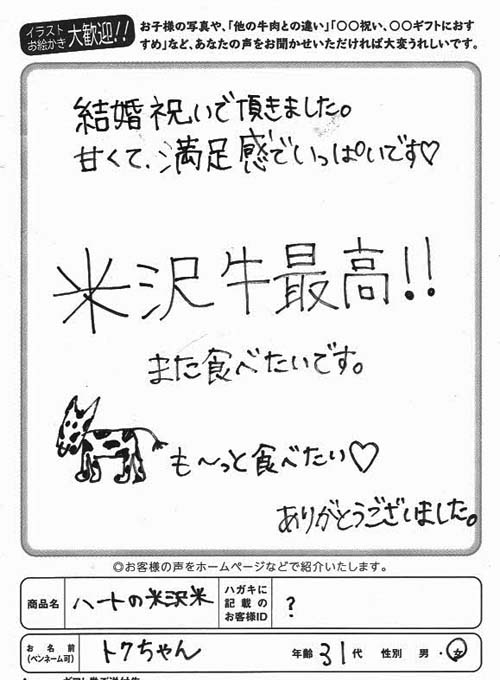 イラスト
お絵かき 大歓迎!!
お子様の写真や、「他の牛肉との違い」「〇〇祝い、〇〇ギフトにおす
すめ」など、あなたの声をお聞かせいただければ大変うれしいです。
結婚祝いで頂きました。
甘くて、満足感でいっぱいです♡
米沢牛最高!!
また食べたいです。
も〜っと食べたい♡
ありがとうございました。
◎お客様の声をホームページなどで紹介いたします。
商品名 ハートの米沢米
ハガキに
記載の
お客様ID
?
お名前
(ペンネーム可)
トクちゃん
年齢 31代 性別 男・女